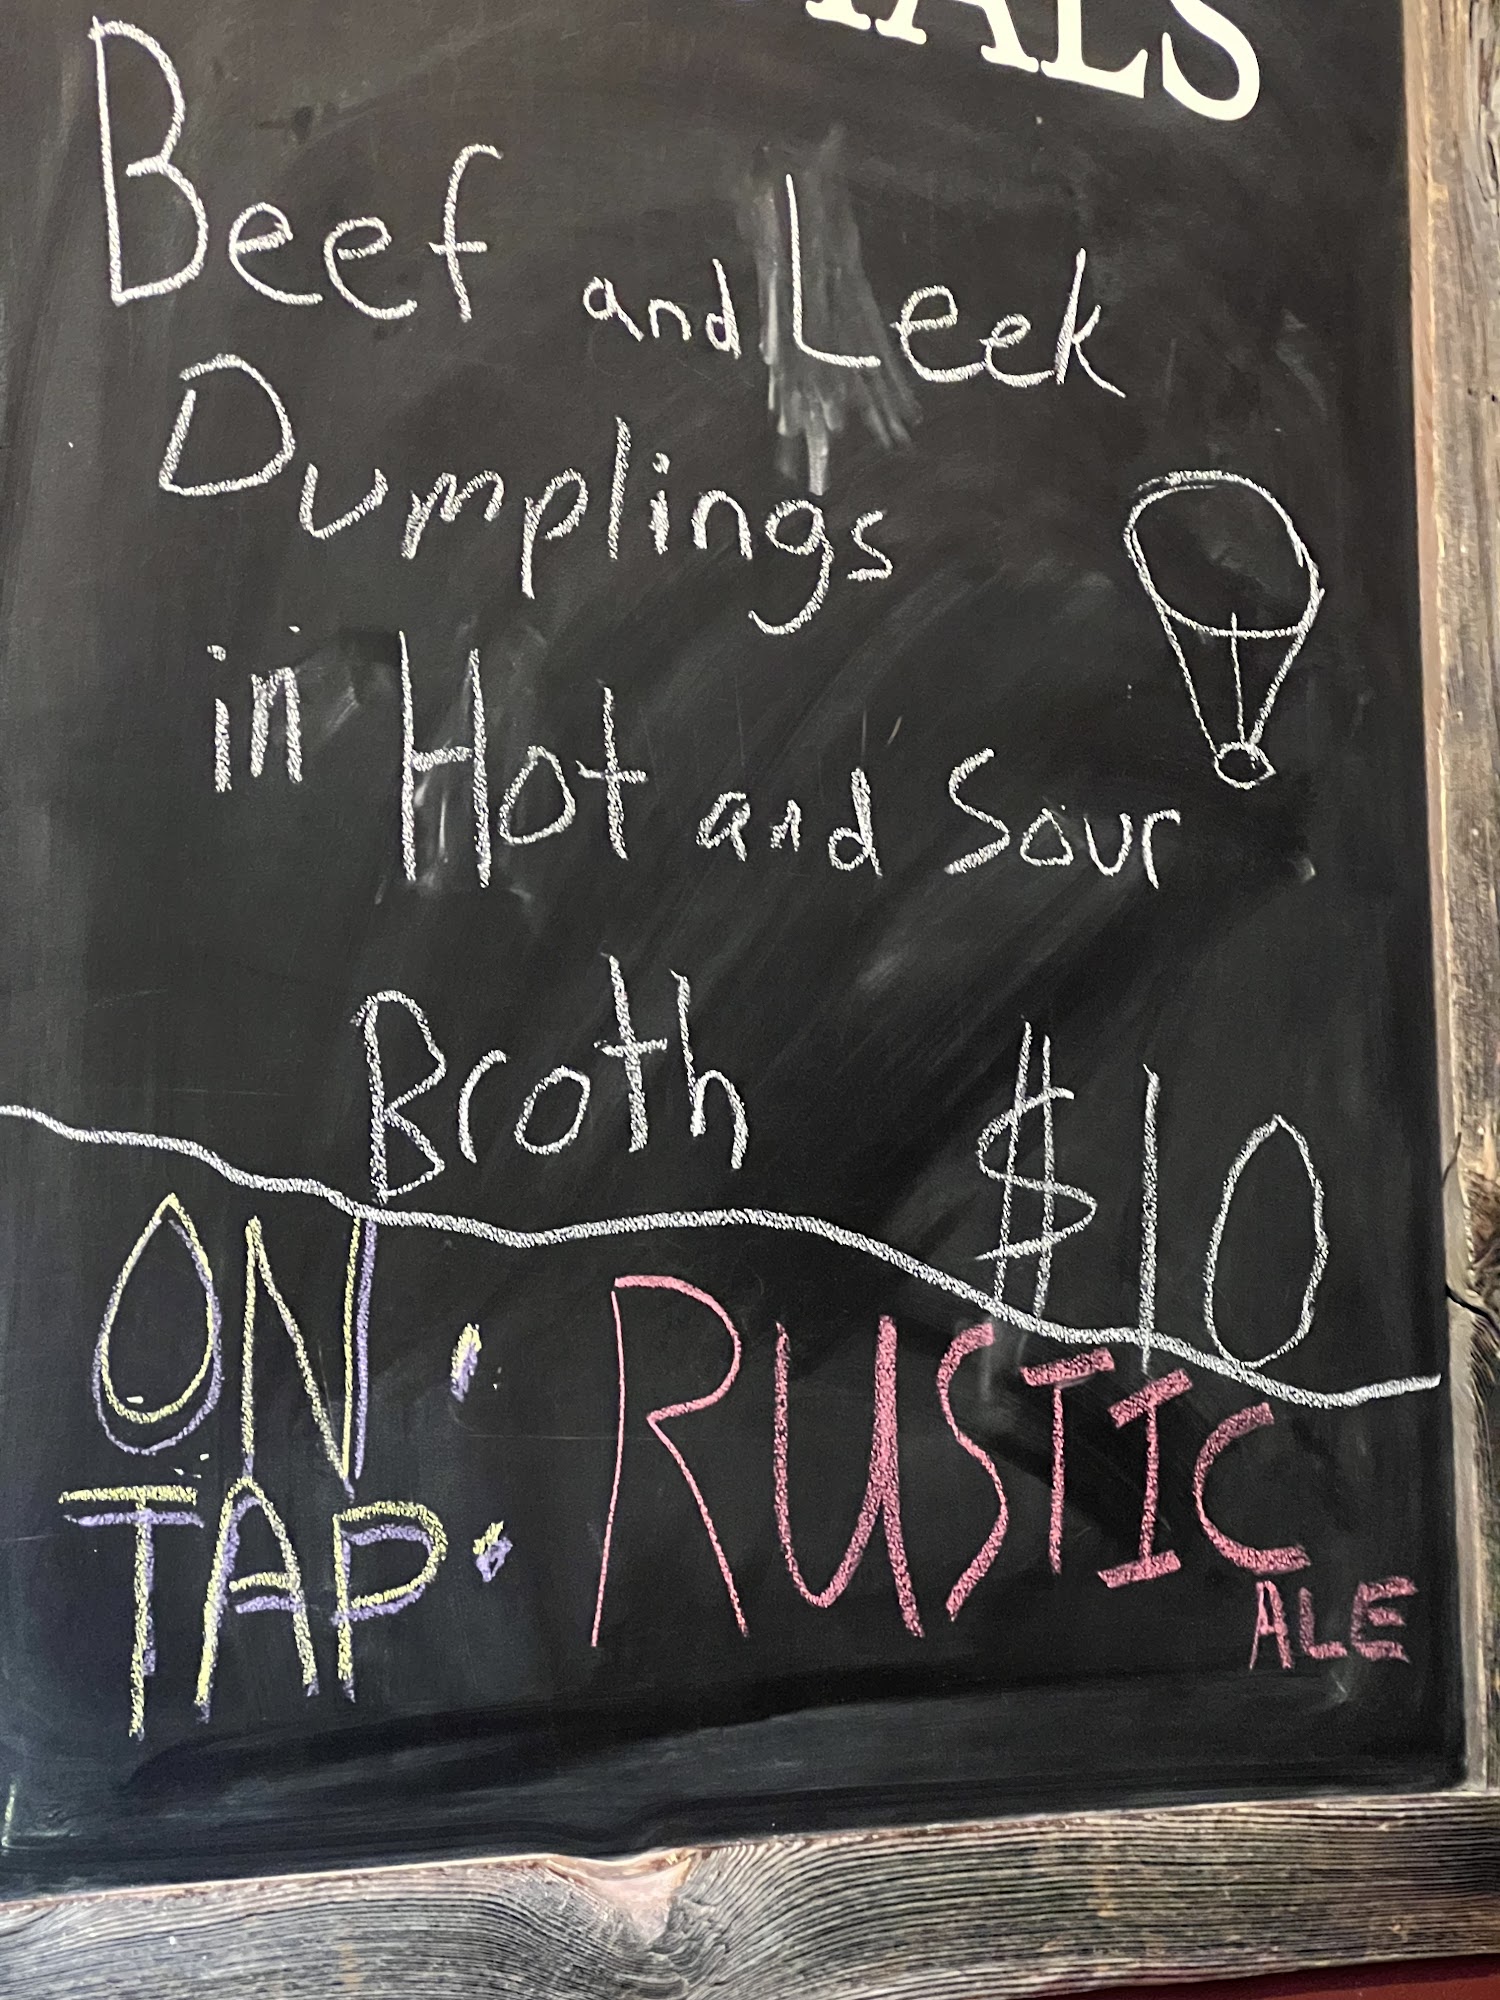 IALS
Beef and Leek
Dumplings
in Hot and Sour
Broth $10
ON
TAP: RUSTIC
ALE